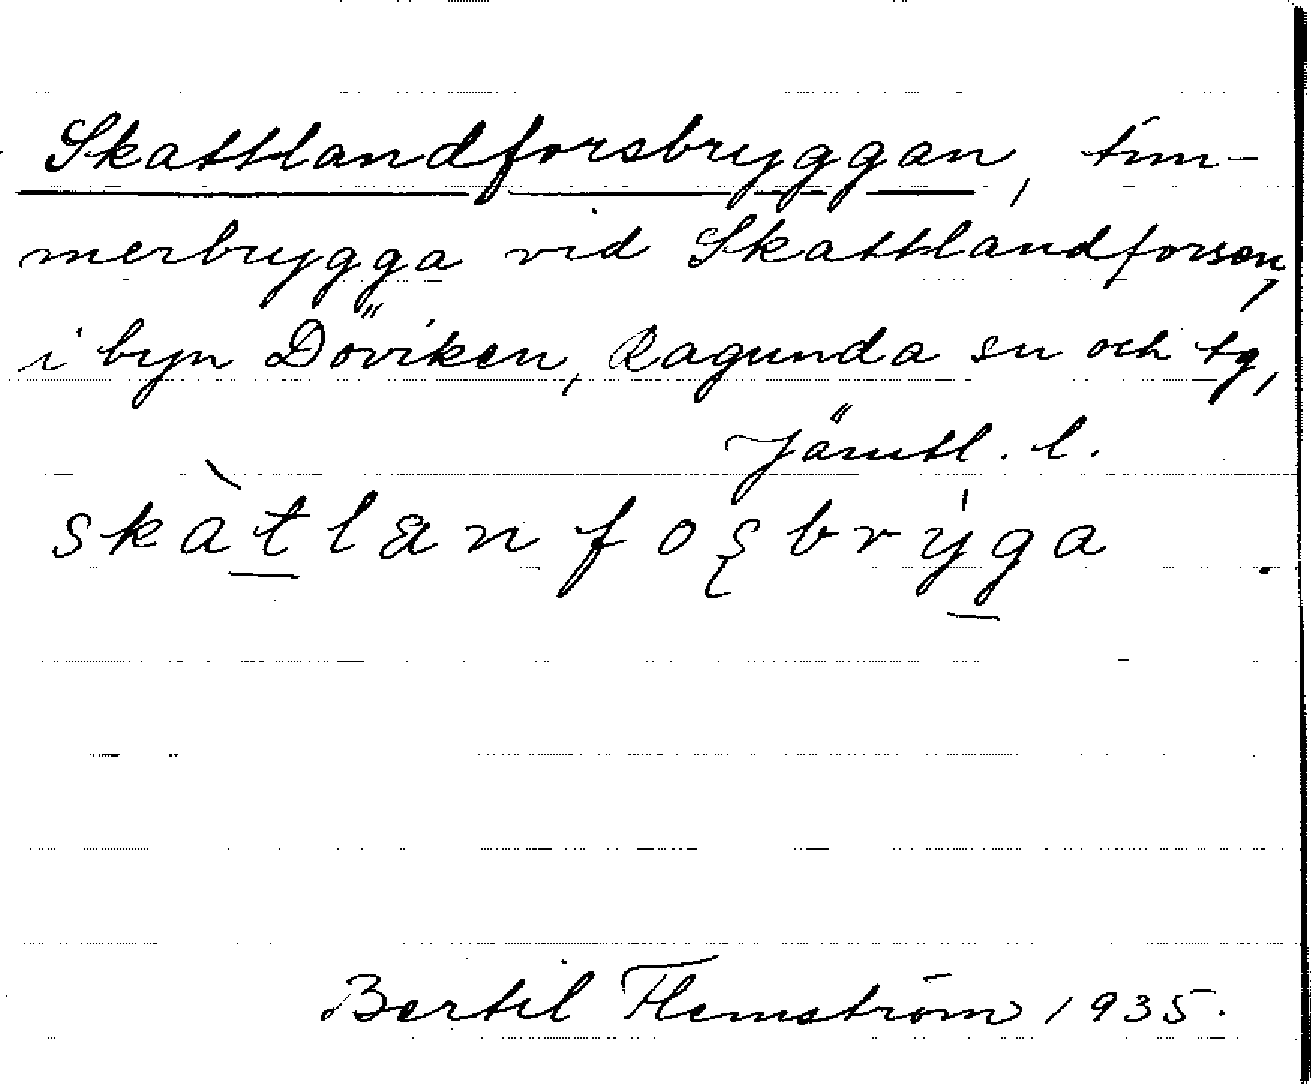 Skattlandforsbryggan, tim-
merbrygga vid Skattlandforsen,
i byn Döviken, Ragunda sn och tg,
Jämtl. l.
skàt̲lan foʂbrý̲ga .
Bertil Flemström 1935.